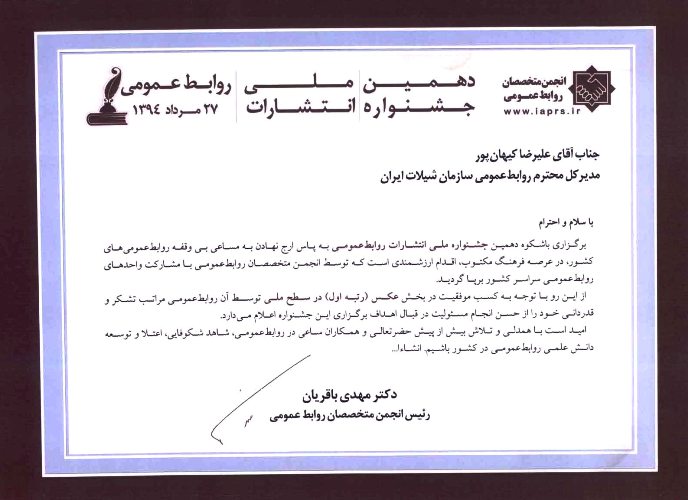 انجمن متخصصان
روابط عمومی
www.iaprs.ir
دهمین ملی روابط عمومی
جشنواره انتشارات ۲۷ مرداد ۱۳۹۴
جناب آقای علیرضا کیهان‌پور
مدیرکل محترم روابط‌عمومی سازمان شیلات ایران
با سلام و احترام
برگزاری باشکوه دهمین جشنواره ملی انتشارات روابط‌عمومی به پاس ارج نهادن به مساعی بی وقفه روابط‌عمومی‌های
کشور، در عرصه فرهنگ مکتوب، اقدام ارزشمندی است که توسط انجمن متخصصان روابط‌عمومی با مشارکت واحدهای
روابط‌عمومی سراسر کشور برپا گردید.
از این رو با توجه به کسب موفقیت در بخش عکس (رتبه اول) در سطح ملی توسط آن روابط‌عمومی مراتب تشکر و
قدردانی خود را از حسن انجام مسئولیت در قبال اهداف برگزاری این جشنواره اعلام می‌دارد.
امید است با همدلی و تلاش بیش از پیش حضرتعالی و همکاران ساعی در روابط‌عمومی، شاهد شکوفایی، اعتلا و توسعه
دانش علمی روابط‌عمومی در کشور باشیم. انشاءا...
دکتر مهدی باقریان
رئیس انجمن متخصصان روابط عمومی